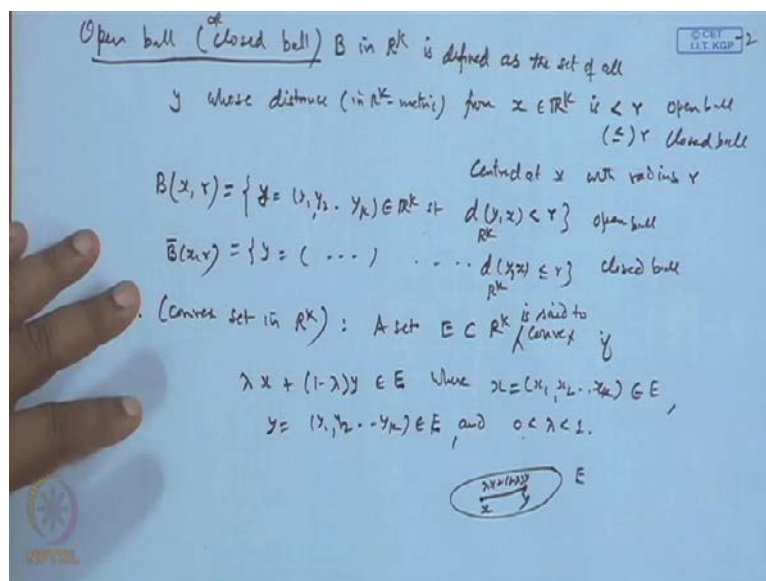 Open ball (or closed ball) B in R^k is defined as the set of all
© CET
I.I.T. KGP
-2
y whose distance (in R^k-metric) from x ∈ R^k is < r open ball
(≤) r closed ball
Centred at x with radius r
B(x, r) = { y = (y_1, y_2 .. y_k) ∈ R^k st d_{R^k}(y, x) < r } open ball
B̄(x, r) = { y = ( .... ) ..... d_{R^k}(y, x) ≤ r } closed ball
. (Convex set in R^k) : A set E ⊂ R^k is said to convex if
λx + (1-λ)y ∈ E where x = (x_1, x_2 .. x_k) ∈ E,
y = (y_1, y_2 .. y_k) ∈ E, and 0 < λ < 1.
λx+(1-λ)y
x y
E
NPTEL